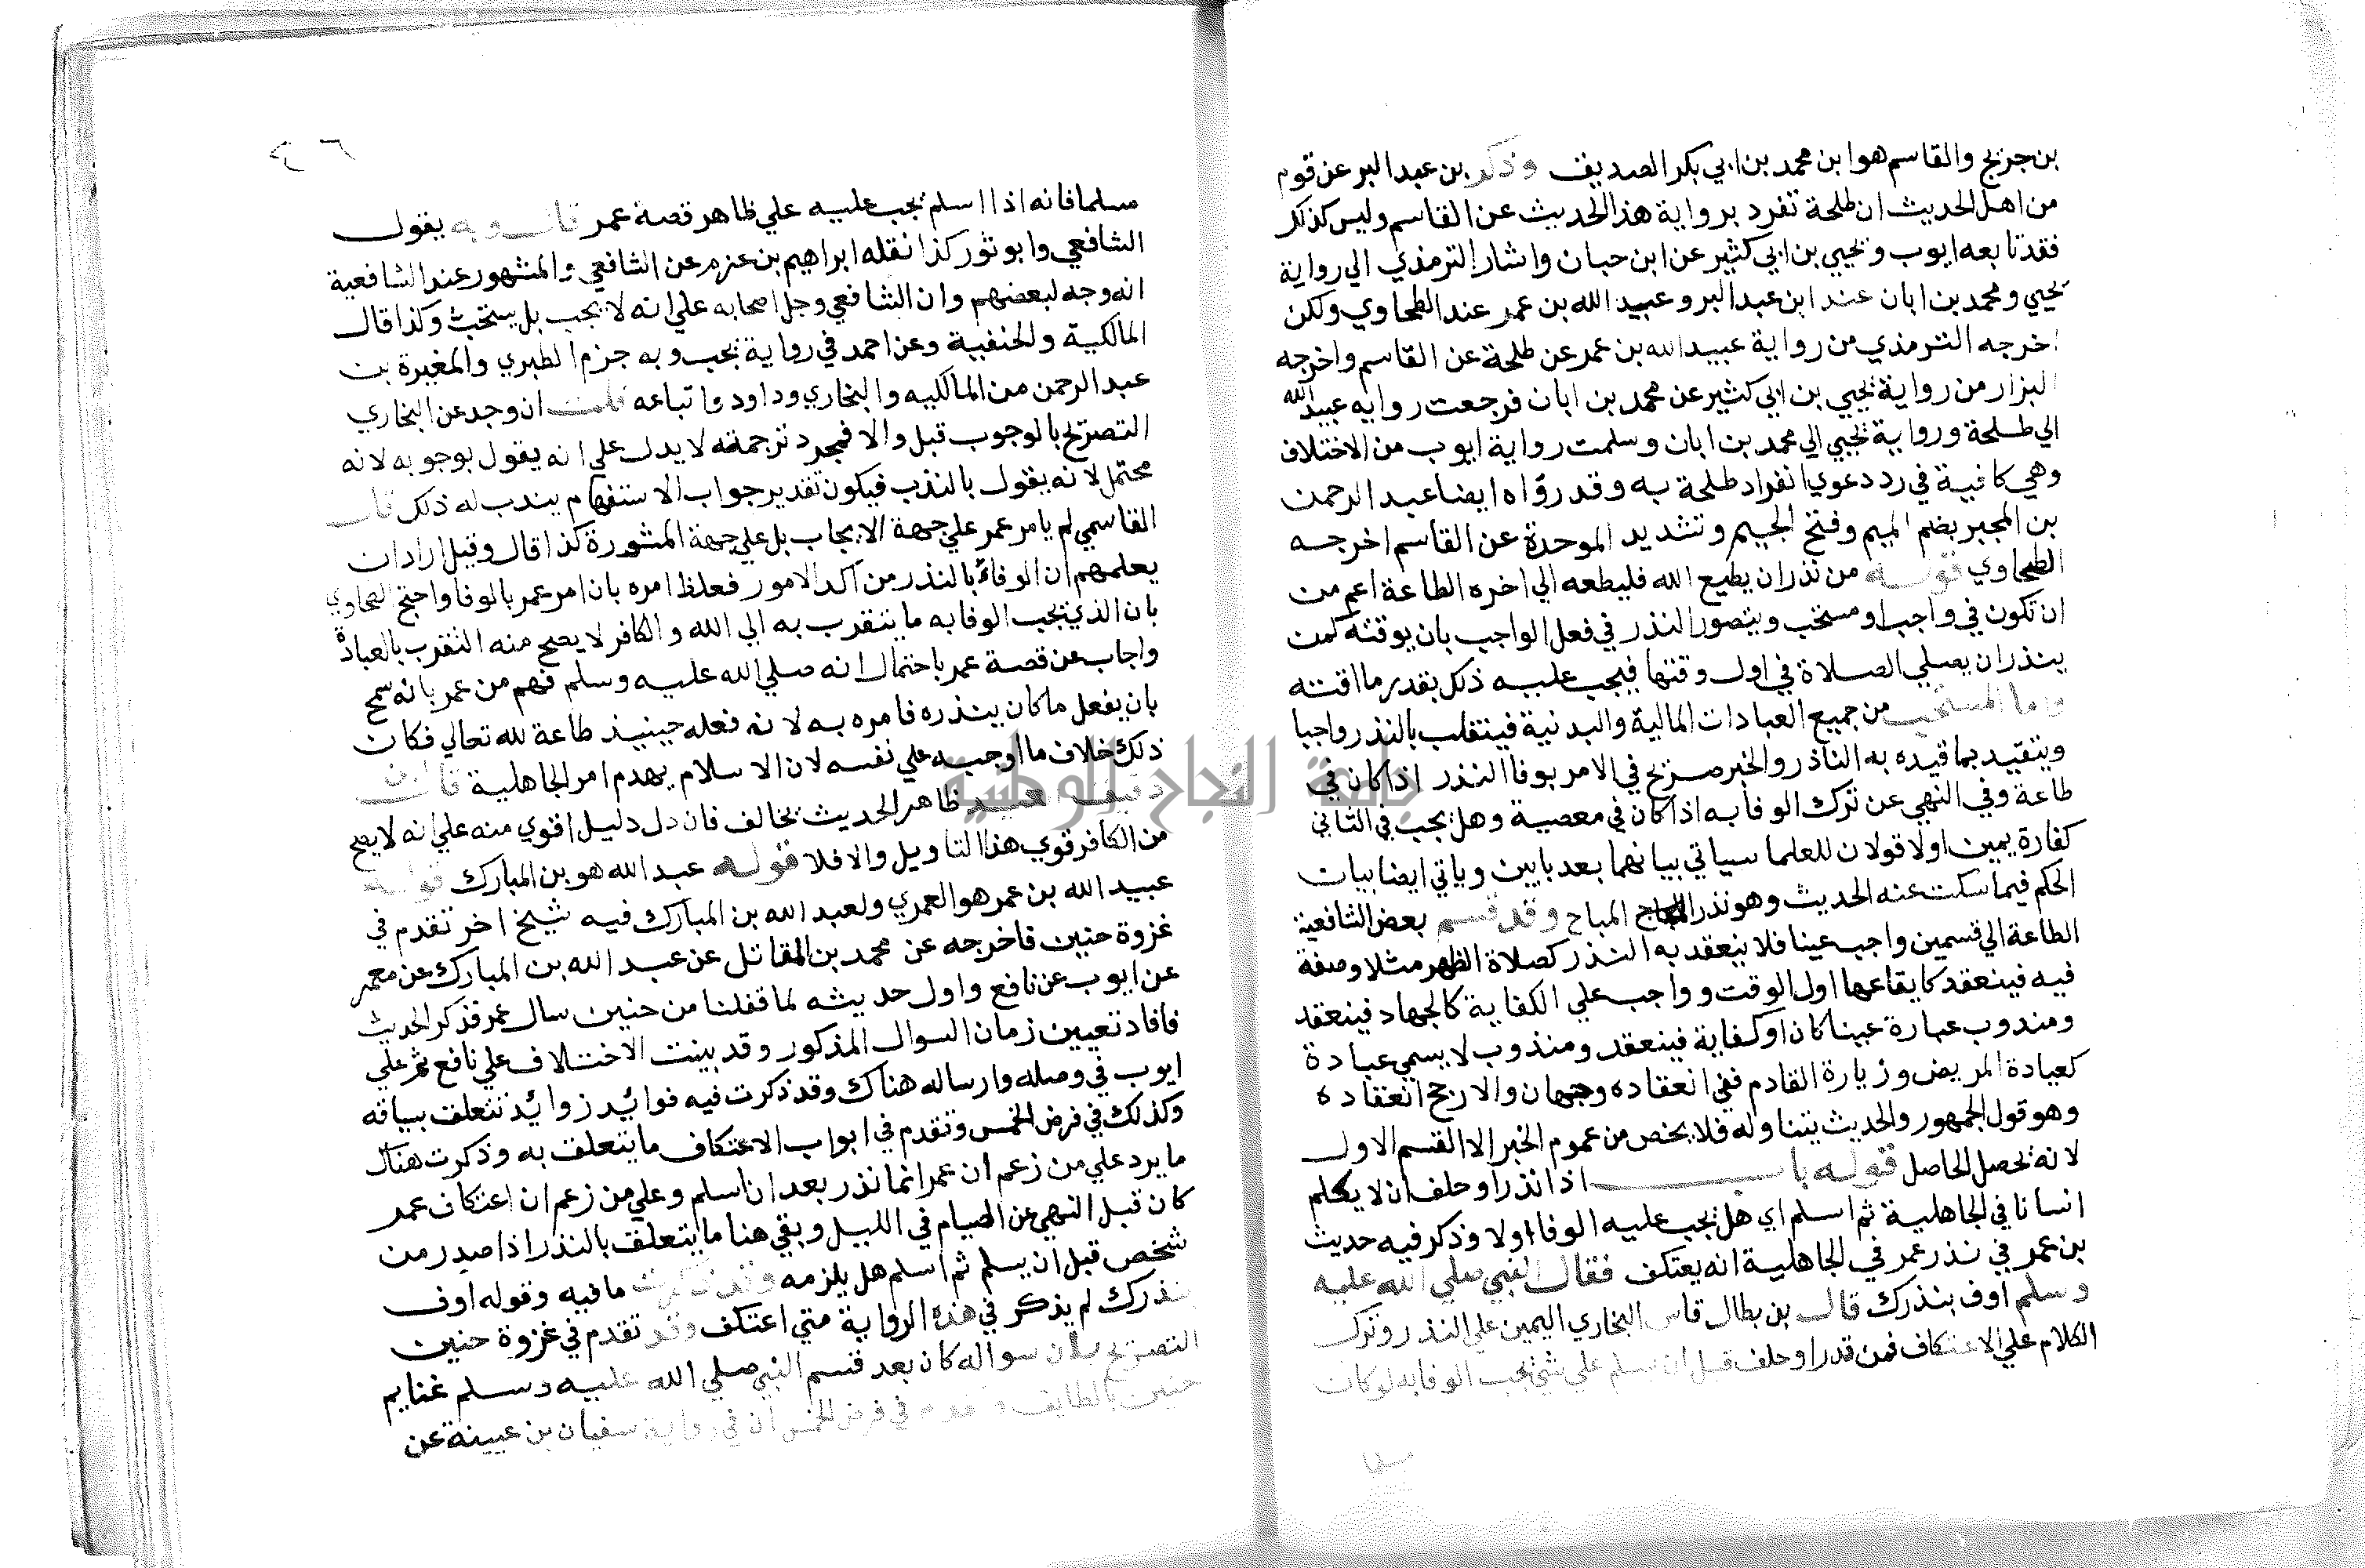 بن جريج والقاسم هو ابن محمد بن ابي بكر الصديق وذكر بن عبد البر عن قوم
من اهل الحديث ان طلحة تفرد برواية هذا الحديث عن القاسم وليس كذلك
فقد تابعه ايوب ويحيي بن ابي كثير عن ابن حبان واشار الترمذي الي رواية
يحيي ومحمد بن ابان عند ابن عبد البر وعبيد الله بن عمر عند الطحاوي ولكن
اخرجه الترمذي من رواية عبيد الله بن عمر عن طلحة عن القاسم واخرجه
البزار من رواية يحيي بن ابي كثير عن محمد بن ابان فرجعت روايه عبيد الله
الي طلحة ورواية يحيي الي محمد بن ابان وسلمت رواية ايوب من الاختلاف
وهي كافية في رد دعوي انفراد طلحة به وقد رواه ايضا عبد الرحمن
بن المجبر بضم الميم وفتح الجيم وتشديد الموحدة عن القاسم اخرجه
الطحاوي قوله من نذر ان يطيع الله فليطعه الي اخره الطاعة اعم من
ان تكون في واجب او مستحب ويتصور النذر في فعل الواجب بان يوقته كمن
ينذر ان يصلي الصلاة في اول وقتها فيجب عليه ذلك بقدر ما اقته
واما المستحب من جميع العبادات المالية والبدنية فينقلب بالنذر واجبا
ويتقيد بما قيده به الناذر والخبر صريح في الامر بوفا النذر اذا كان في
طاعة وفي النهي عن ترك الوفا به اذا كان في معصية وهل يجب في الثاني
كفارة يمين اولا قولان للعلما سياتي بيانهما بعد بابين وياتي ايضا بيان
الحكم فيما سكت عنه الحديث وهو نذر المباح وقد قسم بعض الشافعية
الطاعة الي قسمين واجب عينا فلا ينعقد به النذر كصلاة الظهر مثلا وصفة
فيه فينعقد كايقاعها اول الوقت وواجب علي الكفاية كالجهاد فينعقد
ومندوب عبارة عينا كان او كفاية فينعقد ومندوب لا يسمي عبادة
كعيادة المريض وزيارة القادم ففي انعقاده وجهان والارجح انعقاده
وهو قول الجمهور والحديث يتناوله فلا يخص من عموم الخبر الا القسم الاول
لانه تحصل الحاصل قوله باب اذا نذر او حلف ان لا يكلم
انسانا في الجاهلية ثم اسلم اي هل يجب عليه الوفا اولا وذكر فيه حديث
بن عمر في نذر عمر في الجاهلية انه يعتكف فقال النبي صلي الله عليه
وسلم اوف بنذرك قال بن بطال قاس البخاري اليمين علي النذر وترك
الكلام علي الاعتكاف فمن قدر او حلف قبل ان يسلم علي شئ يجب الوفا به لو كان
مسلما
٤٦
مسلما فانه اذا اسلم يجب عليه علي ظاهر قصة عمر قال وبه يقول
الشافعي وابو ثور كذا نقله ابراهيم بن عزم عن الشافعي والمشهور عند الشافعية
انه وجه لبعضهم وان الشافعي وجل اصحابه علي انه لا يجب بل يستحب وكذا قال
المالكية والحنفية وعن احمد في رواية يجب وبه جزم الطبري والمغيرة بن
عبد الرحمن من المالكيه والبخاري وداود واتباعه قلت ان وجد عن البخاري
التصريح بالوجوب قبل والا فمجرد ترجمته لا يدل علي انه يقول بوجوبه لانه
محتمل لانه يقول بالندب فيكون تقدير جواب الاستفهام يندب له ذلك قال
القاسمي لم يامر عمر علي جهة الايجاب بل علي جهة المشورة كذا قال وقيل اراد ان
يعلمهم ان الوفاء بالنذر من آكد الامور فغلظ امره بان امر عمر بالوفا واحتج الطحاوي
بان الذي يجب الوفا به ما يتقرب به الي الله والكافر لا يصح منه التقرب بالعبادة
واجاب عن قصة عمر باحتمال انه صلي الله عليه وسلم فهم من عمر بانه سمح
بان يفعل ما كان ينذره فامره به لانه فعله حينيذ طاعة لله تعالي فكان
ذلك خلاف ما اوجبه علي نفسه لان الاسلام يهدم امر الجاهلية قال بن
دقيق العيد ظاهر الحديث يخالف فان دل دليل اقوي منه علي انه لا يصح
من الكافر قوي هذا التاويل والا فلا قوله عبد الله هو بن المبارك قوله
عبيد الله بن عمر هو العمري ولعبد الله بن المبارك فيه شيخ اخر تقدم في
غزوة حنين فاخرجه عن محمد بن المقاتل عن عبد الله بن المبارك عن معمر
عن ايوب عن نافع واول حديثه لما قفلنا من حنين سال عمر فذكر الحديث
فافاد تعيين زمان السوال المذكور وقد بينت الاختلاف علي نافع ثم علي
ايوب في وصله وارساله هناك وقد ذكرت فيه فوائد زوائد تتعلق بسياقه
وكذلك في فرض الخمس وتقدم في ابواب الاعتكاف ما يتعلق به وذكرت هناك
ما يرد علي من زعم ان عمر انما نذر بعد ان اسلم وعلي من زعم ان اعتكاف عمر
كان قبل النهي عن الصيام في الليل وبقي هنا ما يتعلق بالنذر اذا صدر من
شخص قبل ان يسلم ثم اسلم هل يلزمه وقد ذكرت ما فيه وقوله اوف
بنذرك لم يذكر في هذه الرواية متي اعتكف وقد تقدم في غزوة حنين
التصريح بان سواله كان بعد قسم النبي صلي الله عليه وسلم غنايم
حنين بالطايف وتقدم في فرض الخمس ان في رواية سفيان بن عيينة عن
جامعة النجاح الوطنية